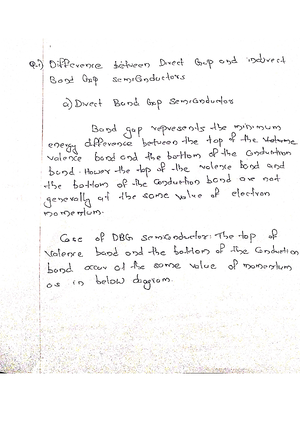 Q.1) Difference between Direct Gap and indirect
Band Gap semiconductors
a) Direct Band Gap Semiconductor
Band gap represents the minimum
energy difference between the top of the Valume
valence band and the bottom of the Conduction
band. Hower the top of the valence band and
the bottom of the Conduction band are not
generally at the same value of electron
momentum.
Case of DBG semiconductor: The top of
Valence band and the bottom of the Conduction
band occur at the same value of momentum
as in below diagram.